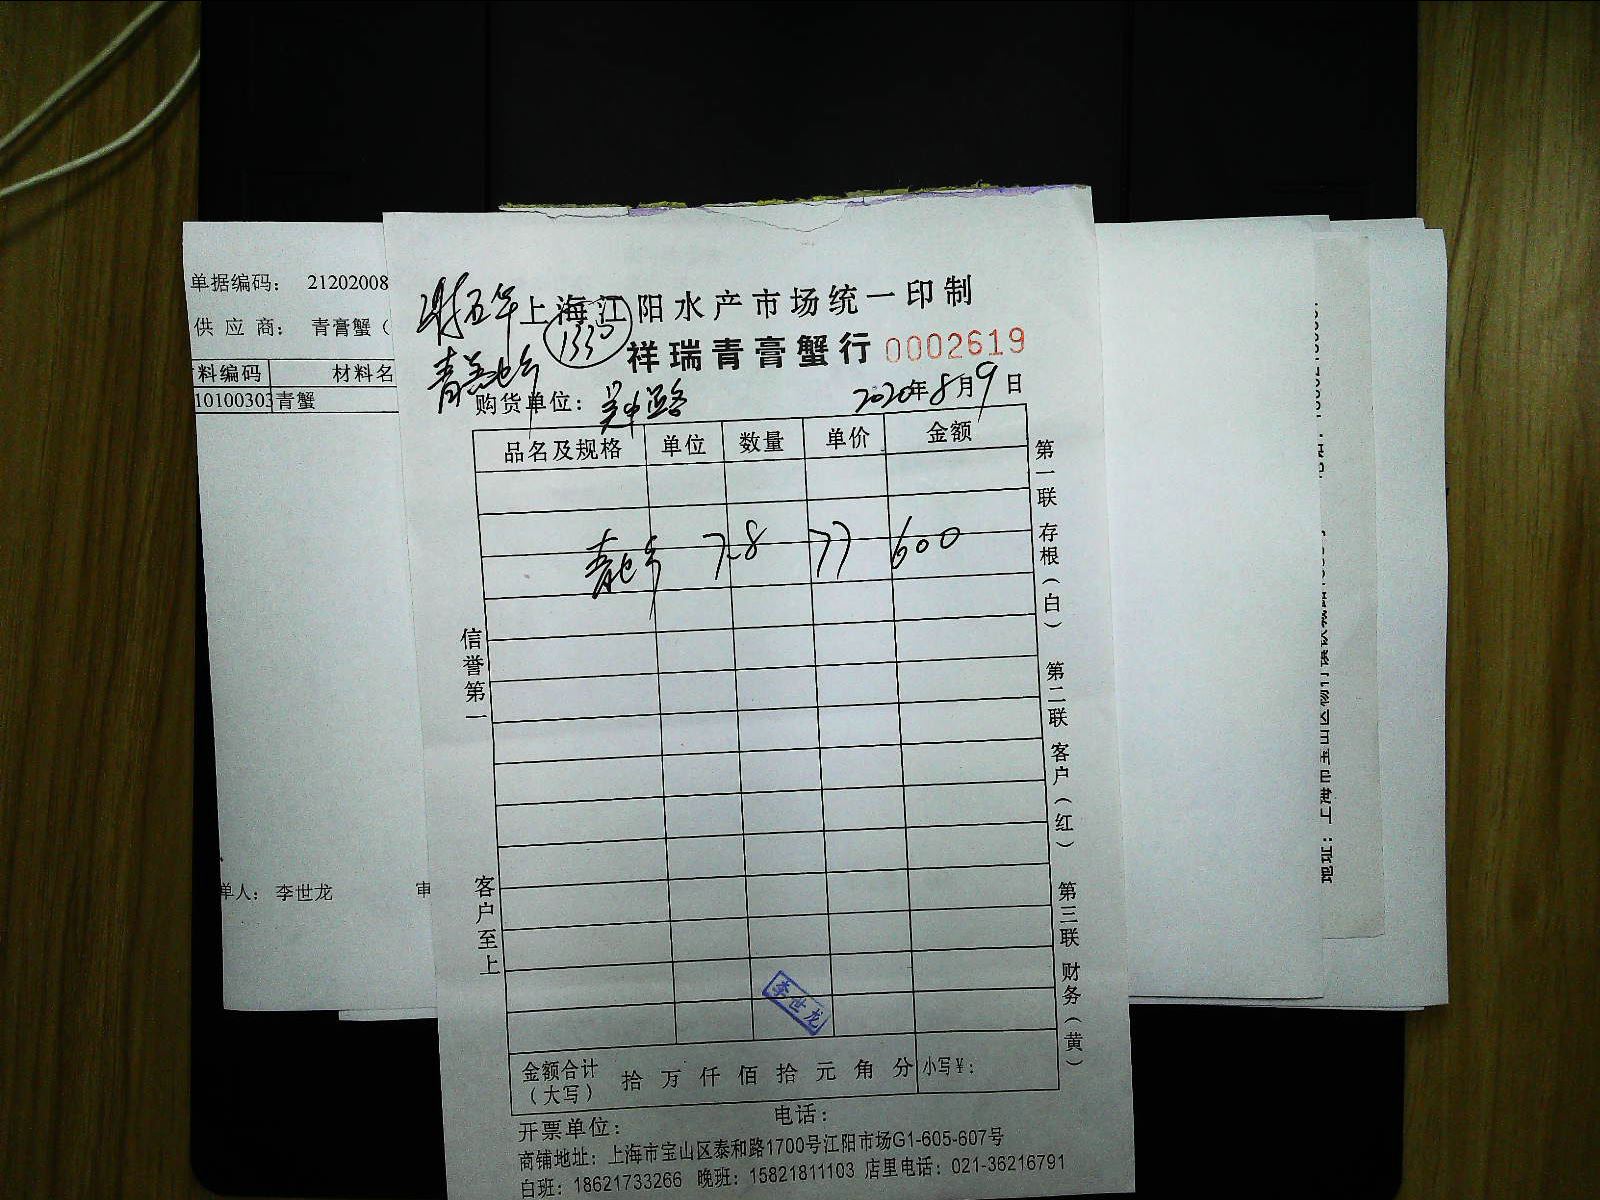 单据编码： 21202008
供 应 商： 青膏蟹（
料编码 材料名
10100303 青蟹
单人： 李世龙 审
上海江阳水产市场统一印制
1330
祥瑞青膏蟹行 0002619
购货单位： 吴中路 2020年8月9日
品名及规格 单位 数量 单价 金额
7.8 77 600
信誉第一
客户至上
第一联 存根（白）
第二联 客户（红）
第三联 财务（黄）
李世龙
金额合计（大写） 拾 万 仟 佰 拾 元 角 分 小写¥：
开票单位： 电话：
商铺地址：上海市宝山区泰和路1700号江阳市场G1-605-607号
白班：18621733266 晚班：15821811103 店里电话：021-36216791